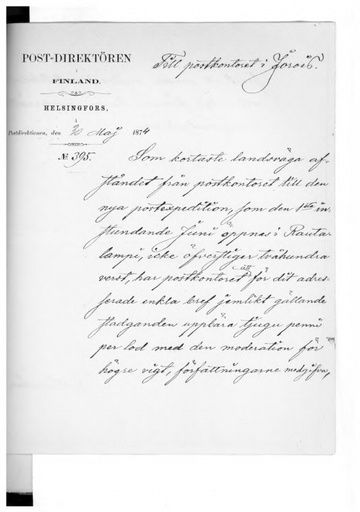 POST-DIREKTÖREN
i
FINLAND.
HELSINGFORS,
Postdirektionen, den 20 Maj 1874
№ 395.
Till postkontoret i Jorois.
Som kortaste landsväga af-
ståndet från postkontoret till den
nya postexpedition, som den 1sta in-
stundande Juni öppnas i Rauta-
lampi, icke öfverstiger tvåhundra
verst, har postkontoret för dit adres-
serade enkla bref jemlikt gällande
stadganden uppbära tjugu penni
per lod med den moderation för
högre vigt, författningarne medgifva,